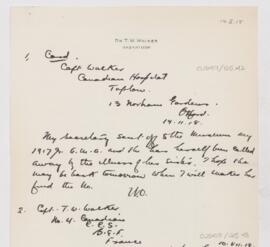 14.11.18
DR T. W. WALKER
SASKATOON
1, Card.
Capt Walker
Canadian Hospital
Taplow.
13 Norham Gardens.
Oxford.
14.11.18.
My Secretary sent off 5 the Museum my
1917 and has herself been called
away by the illness of her sister. I hope
be back tomorrow when I will make her
find the No.
W.O.
2. Capt. T. W. Walker
No. 4. Canadian
C.C.S.
B.E.F.
France